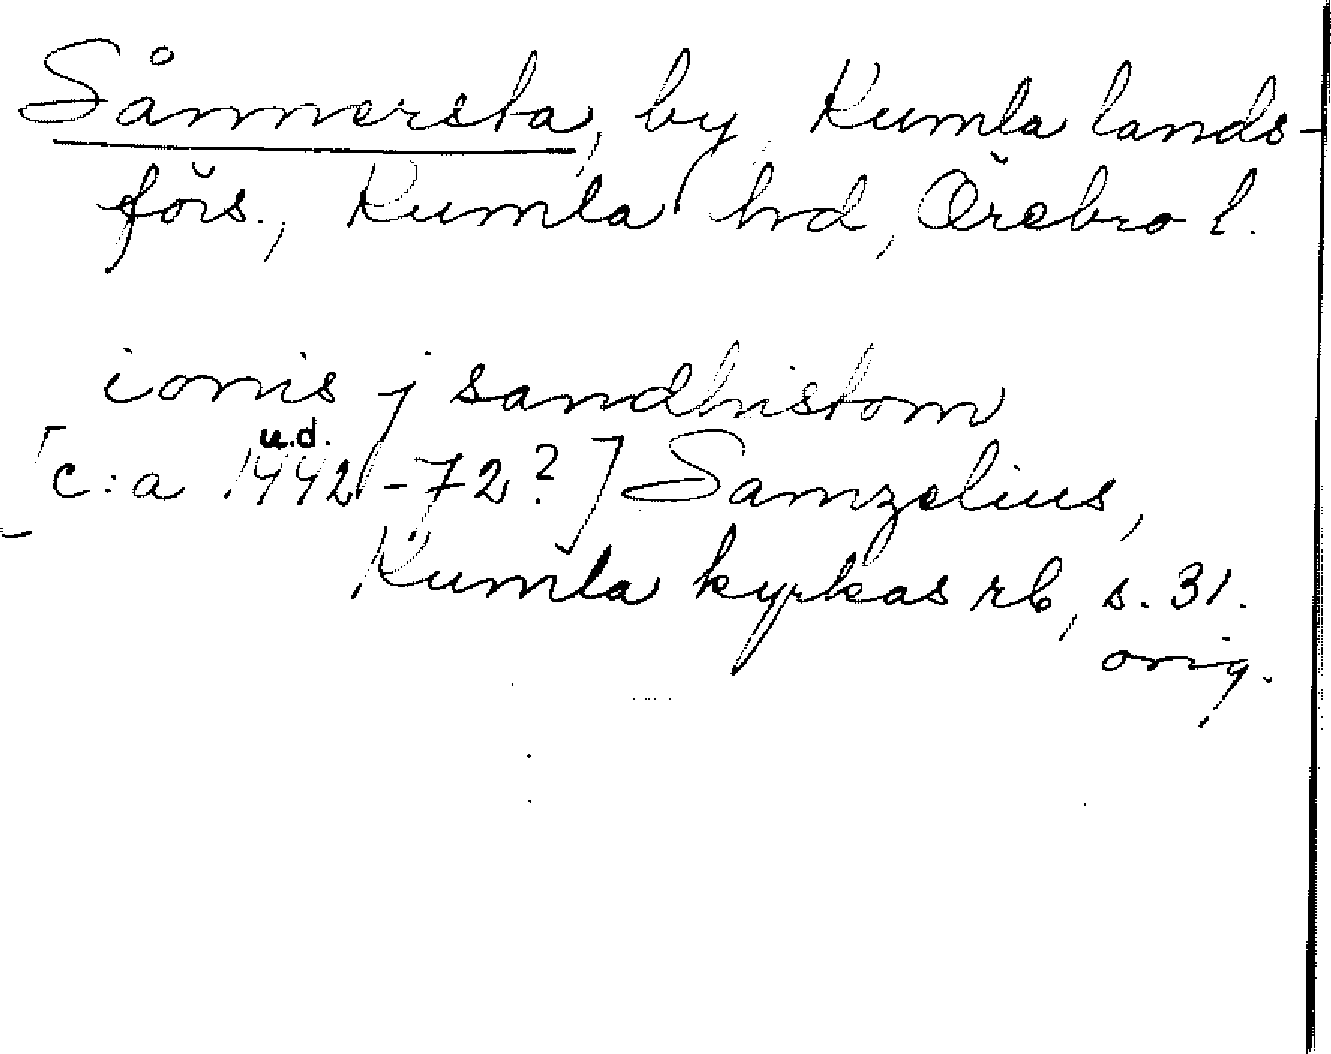 Sånnersta, by, Kumla lands-
förs., Kumla hd, Örebro l.
ionis j sandhistom
u.d.
[c:a 1442-72?] Samzelius,
Kumla kyrkas rb, s. 31.
orig.